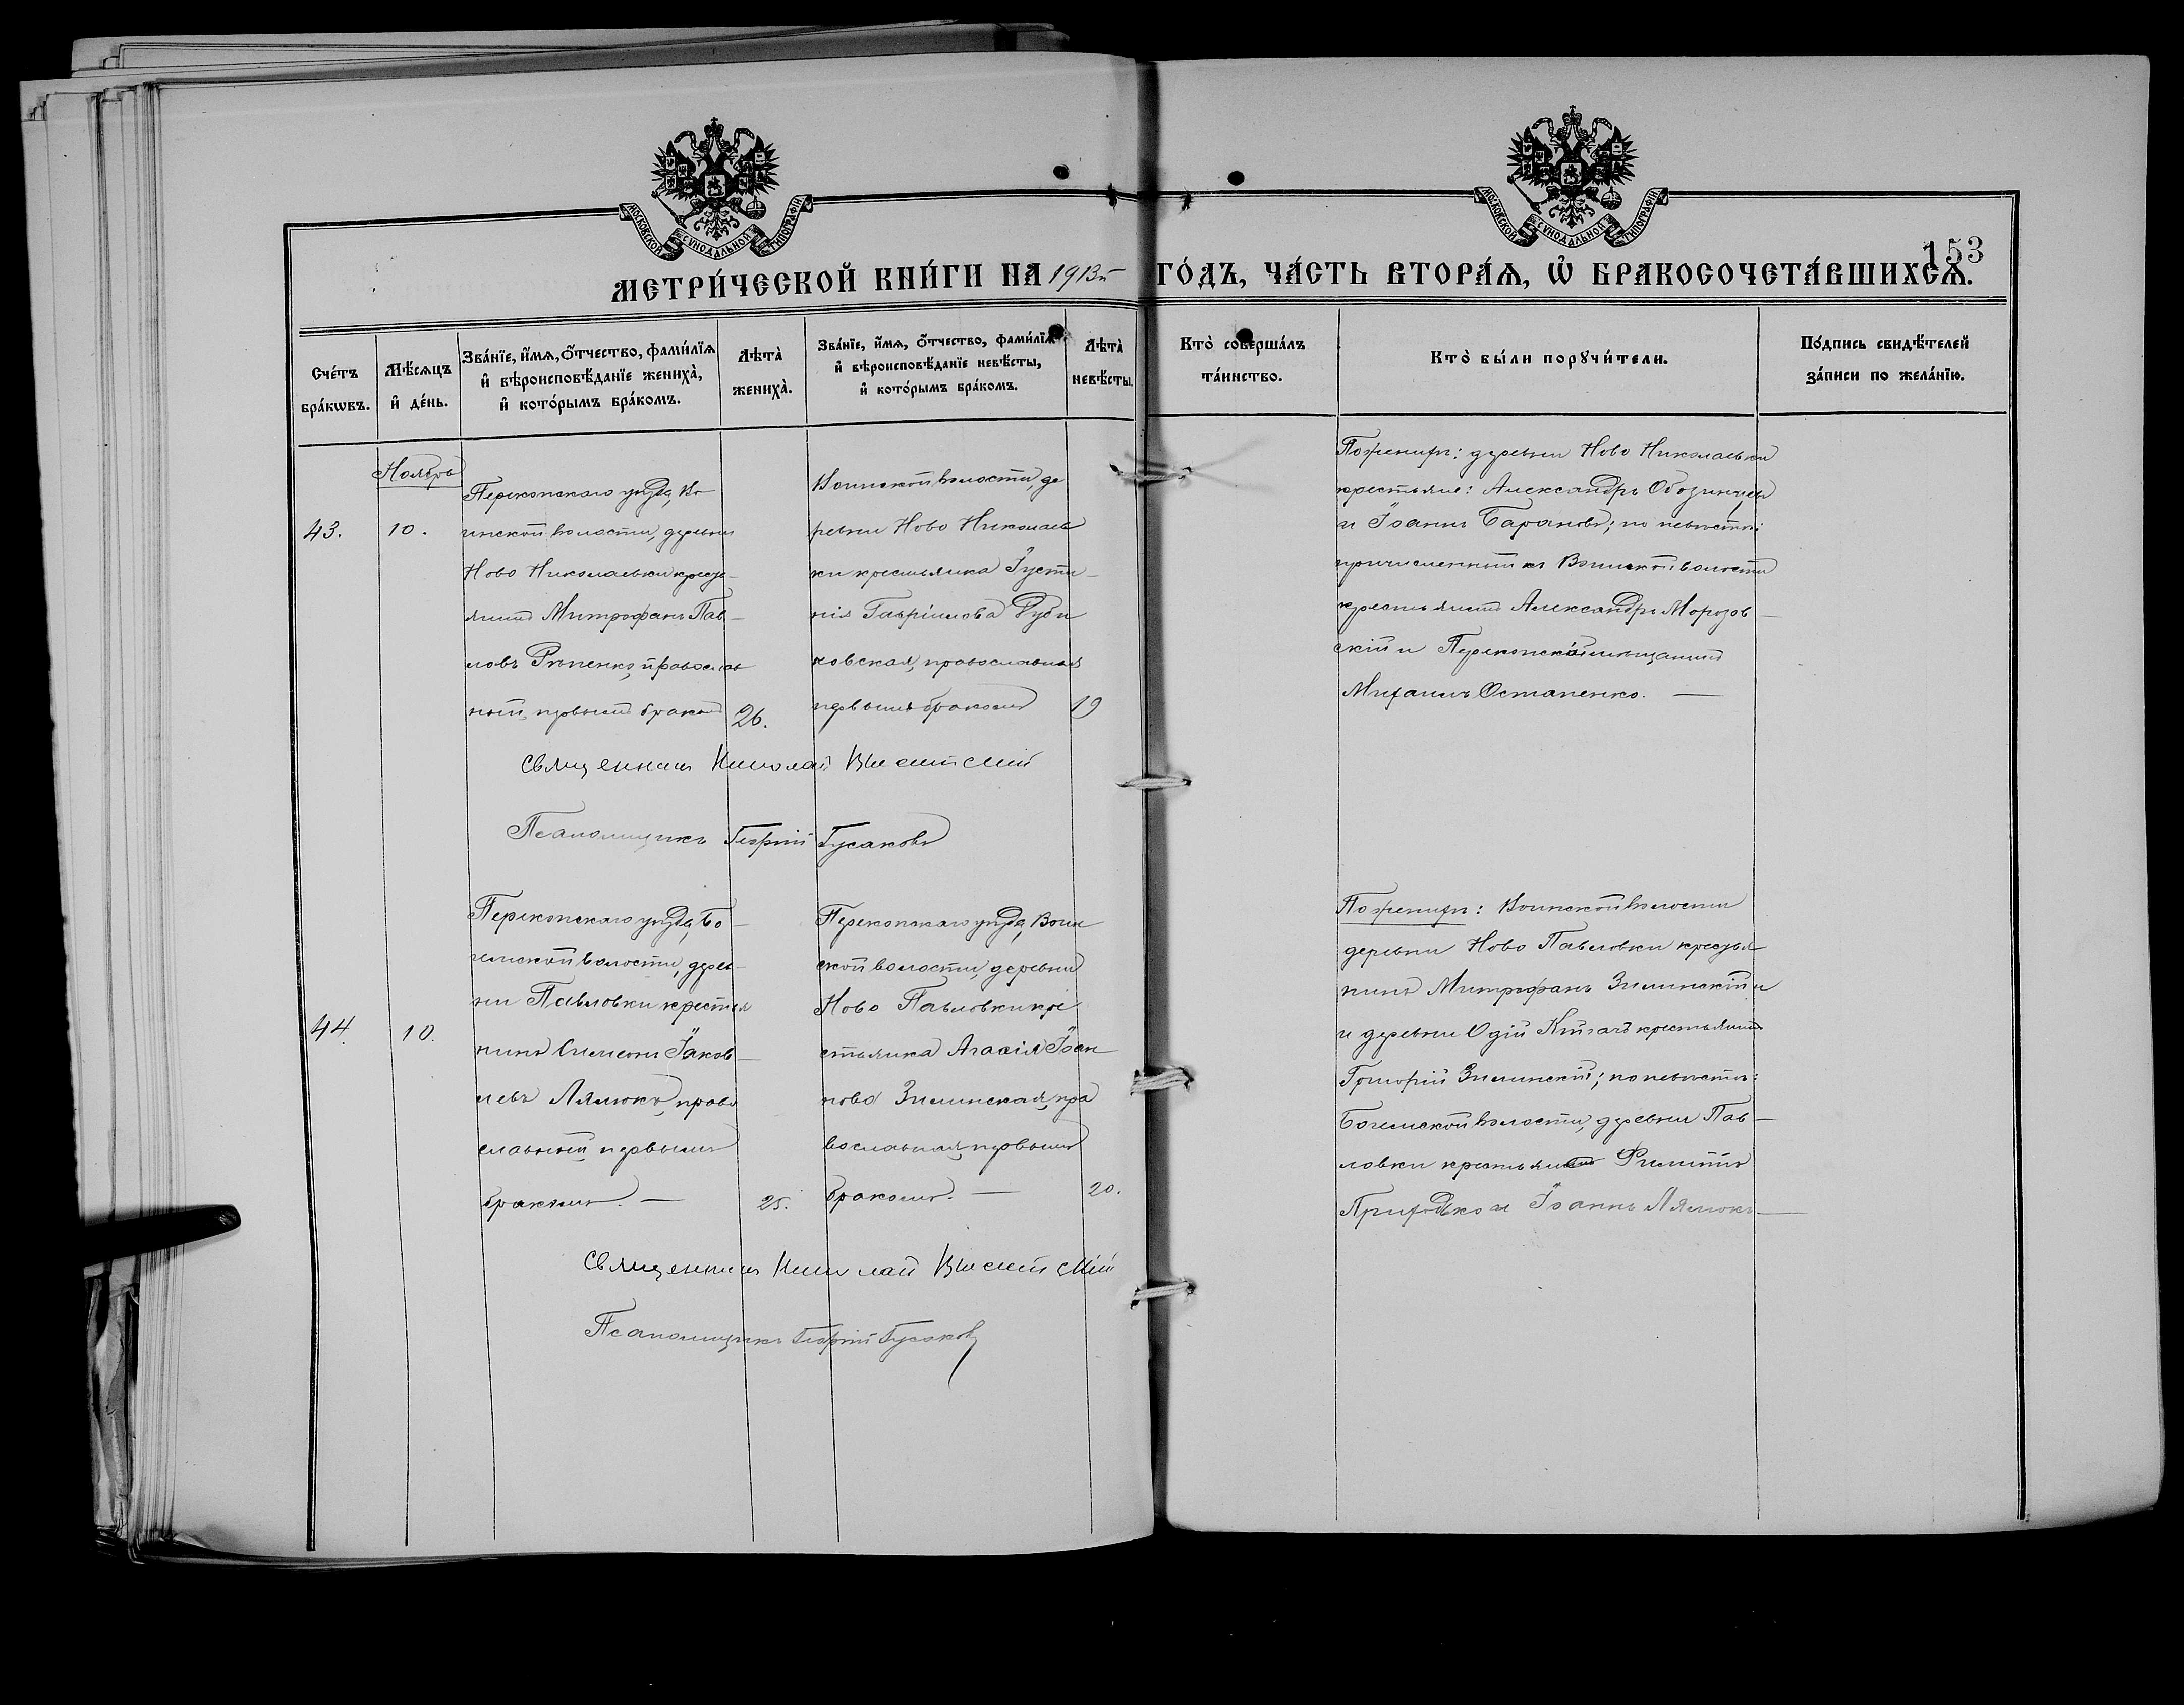 МОСКОВСКОЙ СѴНОДАЛЬНОЙ ТИПОГРАФІИ
МОСКОВСКОЙ СѴНОДАЛЬНОЙ ТИПОГРАФІИ
153
МЕТРИ́ЧЕСКОЙ КНИ́ГИ НА 1913й ГО́ДЪ, ЧА́СТЬ ВТОРА́Ѧ, Ѽ БРАКОСОЧЕТА́ВШИХСѦ.
Сче́тъ бра́кѡвъ.
Мѣ́сѧцъ и҆ де́нь.
Зва́нїе, и҆́мѧ, ѻ҆́тчество, фами́лїѧ и҆ вѣроисповѣ́данїе жениха̀, и҆ кото́рымъ бра́комъ.
Лѣта̀ жениха̀.
Зва́нїе, и҆́мѧ, ѻ҆́тчество, фами́лїѧ и҆ вѣроисповѣ́данїе невѣ́сты, и҆ кото́рымъ бра́комъ.
Лѣта̀ невѣ́сты.
Кто̀ соверша́лъ та́инство.
Кто̀ бы́ли порꙋчи́тели.
По́дпись свидѣ́телей за́писи по жела́нїю.
Ноябрь
43.
10.
Перекопскаго уѣзда, Во-
инской волости, деревни
Ново Николаевки кресть-
янинъ Митрофанъ Пав-
ловъ Рѣпенко, православ
ный, первымъ бракомъ
26.
Воинской волости, де
ревни Ново Николаев
ки крестьянка Іусти-
нія Гавріилова Дуби
ковская, православная
первымъ бракомъ
19
По женихѣ: деревни Ново Николаевки
крестьяне: Александръ
и Іоаннъ Барановъ; по невѣстѣ:
причисленный къ Воинской волости
крестьянинъ Александръ Морозов-
скій и Перекопскій мѣщанинъ
Михаилъ Остапенко. —
Священникъ Николай
Псаломщикъ Георгій Гусаковъ
44.
10.
Перекопскаго уѣзда, Бо-
гемской волости, дерев-
ни Павловки крестья
нинъ Симеонъ Іаков-
левъ Лялюкъ, право
славный первымъ
бракомъ. —
25.
Перекопскаго уѣзда, Воин
ской волости, деревни
Ново Павловки кре
стьянка Агаѳія Іоан
нова Зилинская, пра
вославная, первымъ
бракомъ. —
20.
По женихѣ: Воинской волости
деревни Ново Павловки крестья
нинъ Митрофанъ Зилинскій
и деревни крестьянинъ
Григорій Зилинскій; по невѣстѣ:
Богемской волости, деревни Пав-
ловки крестьяне Филиппъ
Приходько и Іоаннъ Лялюкъ —
Священникъ Николай
Псаломщикъ Георгій Гусаковъ